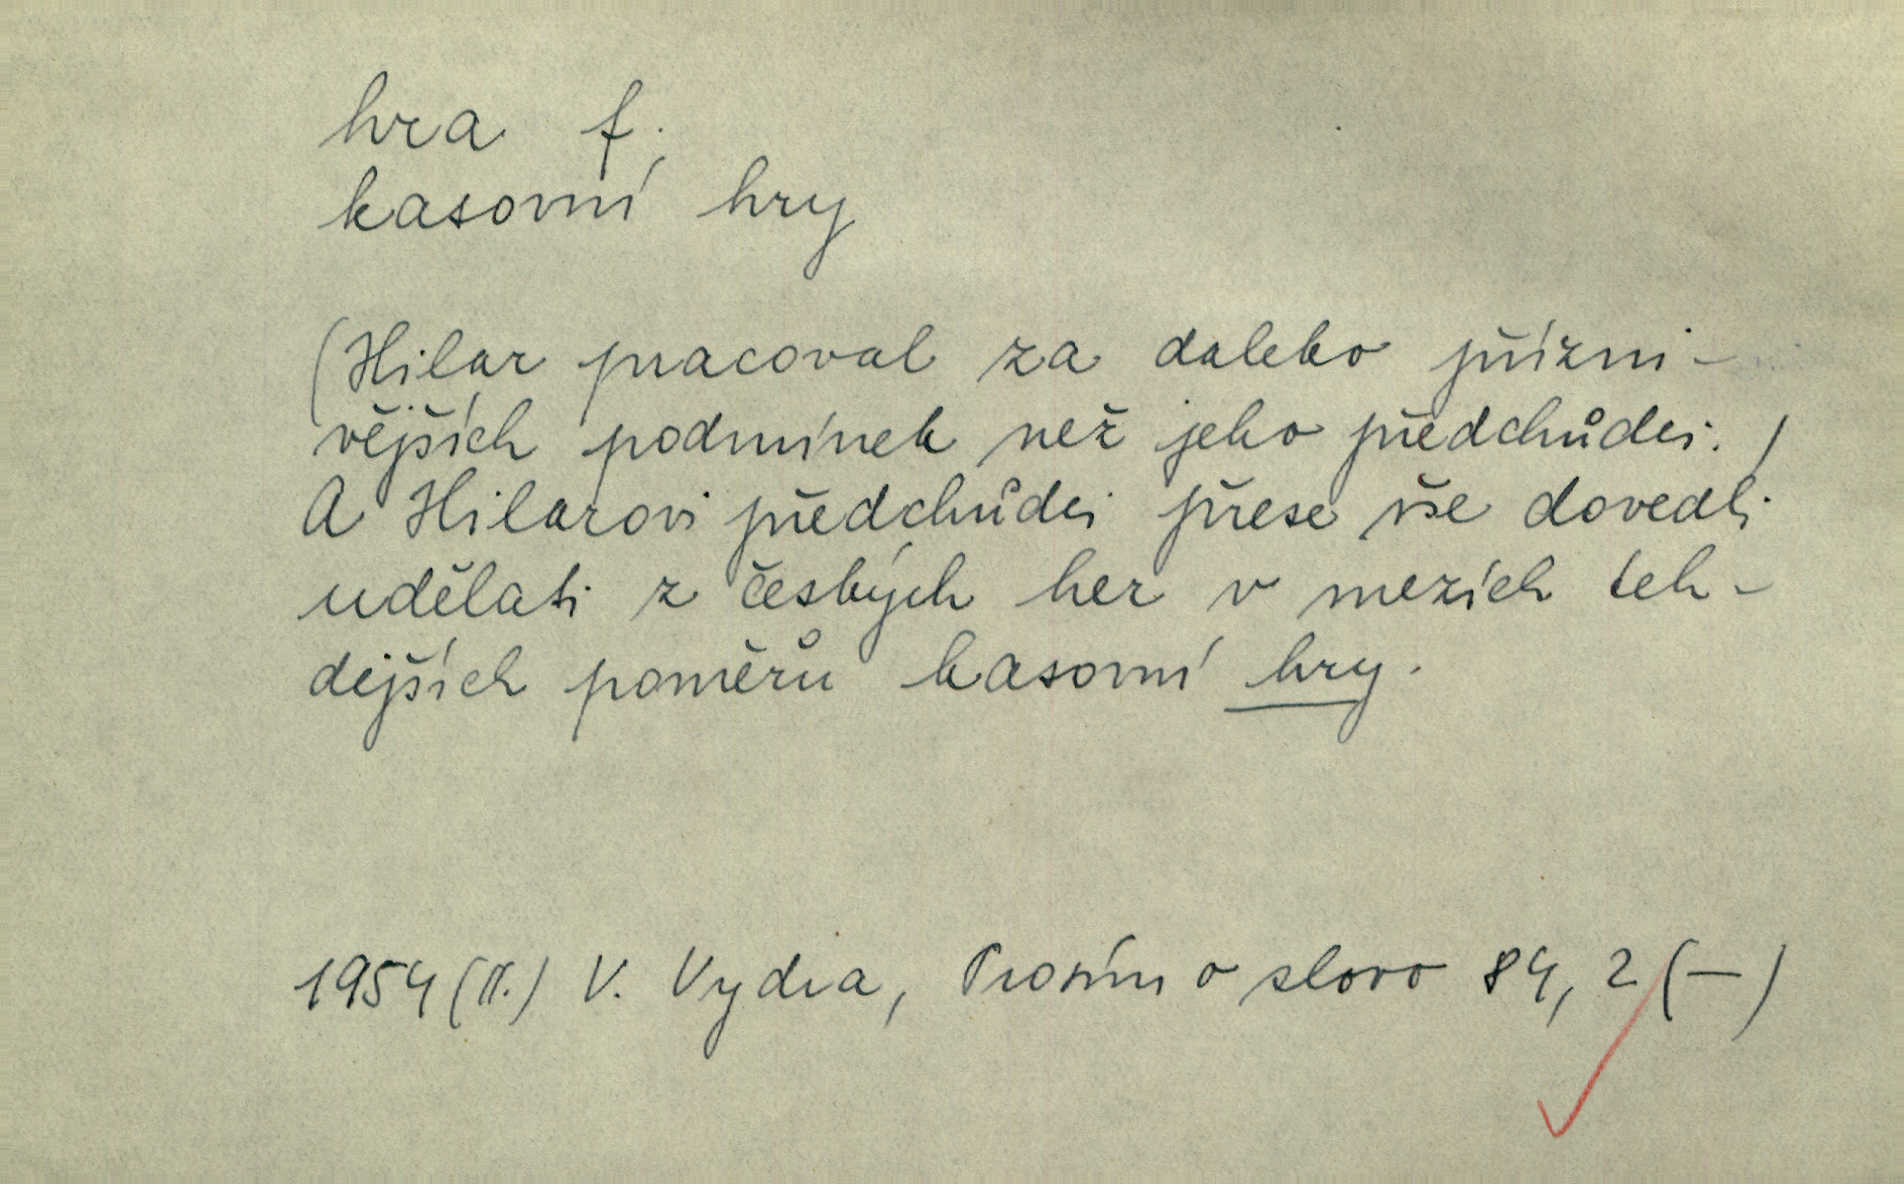 hra f.
kasovní hry
(Hilar pracoval za daleko přízni-
vějších podmínek než jeho předchůdci.)
A Hilarovi předchůdci přese vše dovedli
udělati z českých her v mezích teh-
dejších poměrů kasovní hry.
1954 (II.) V. Vydra, Prosím o slovo 84, 2 (—)